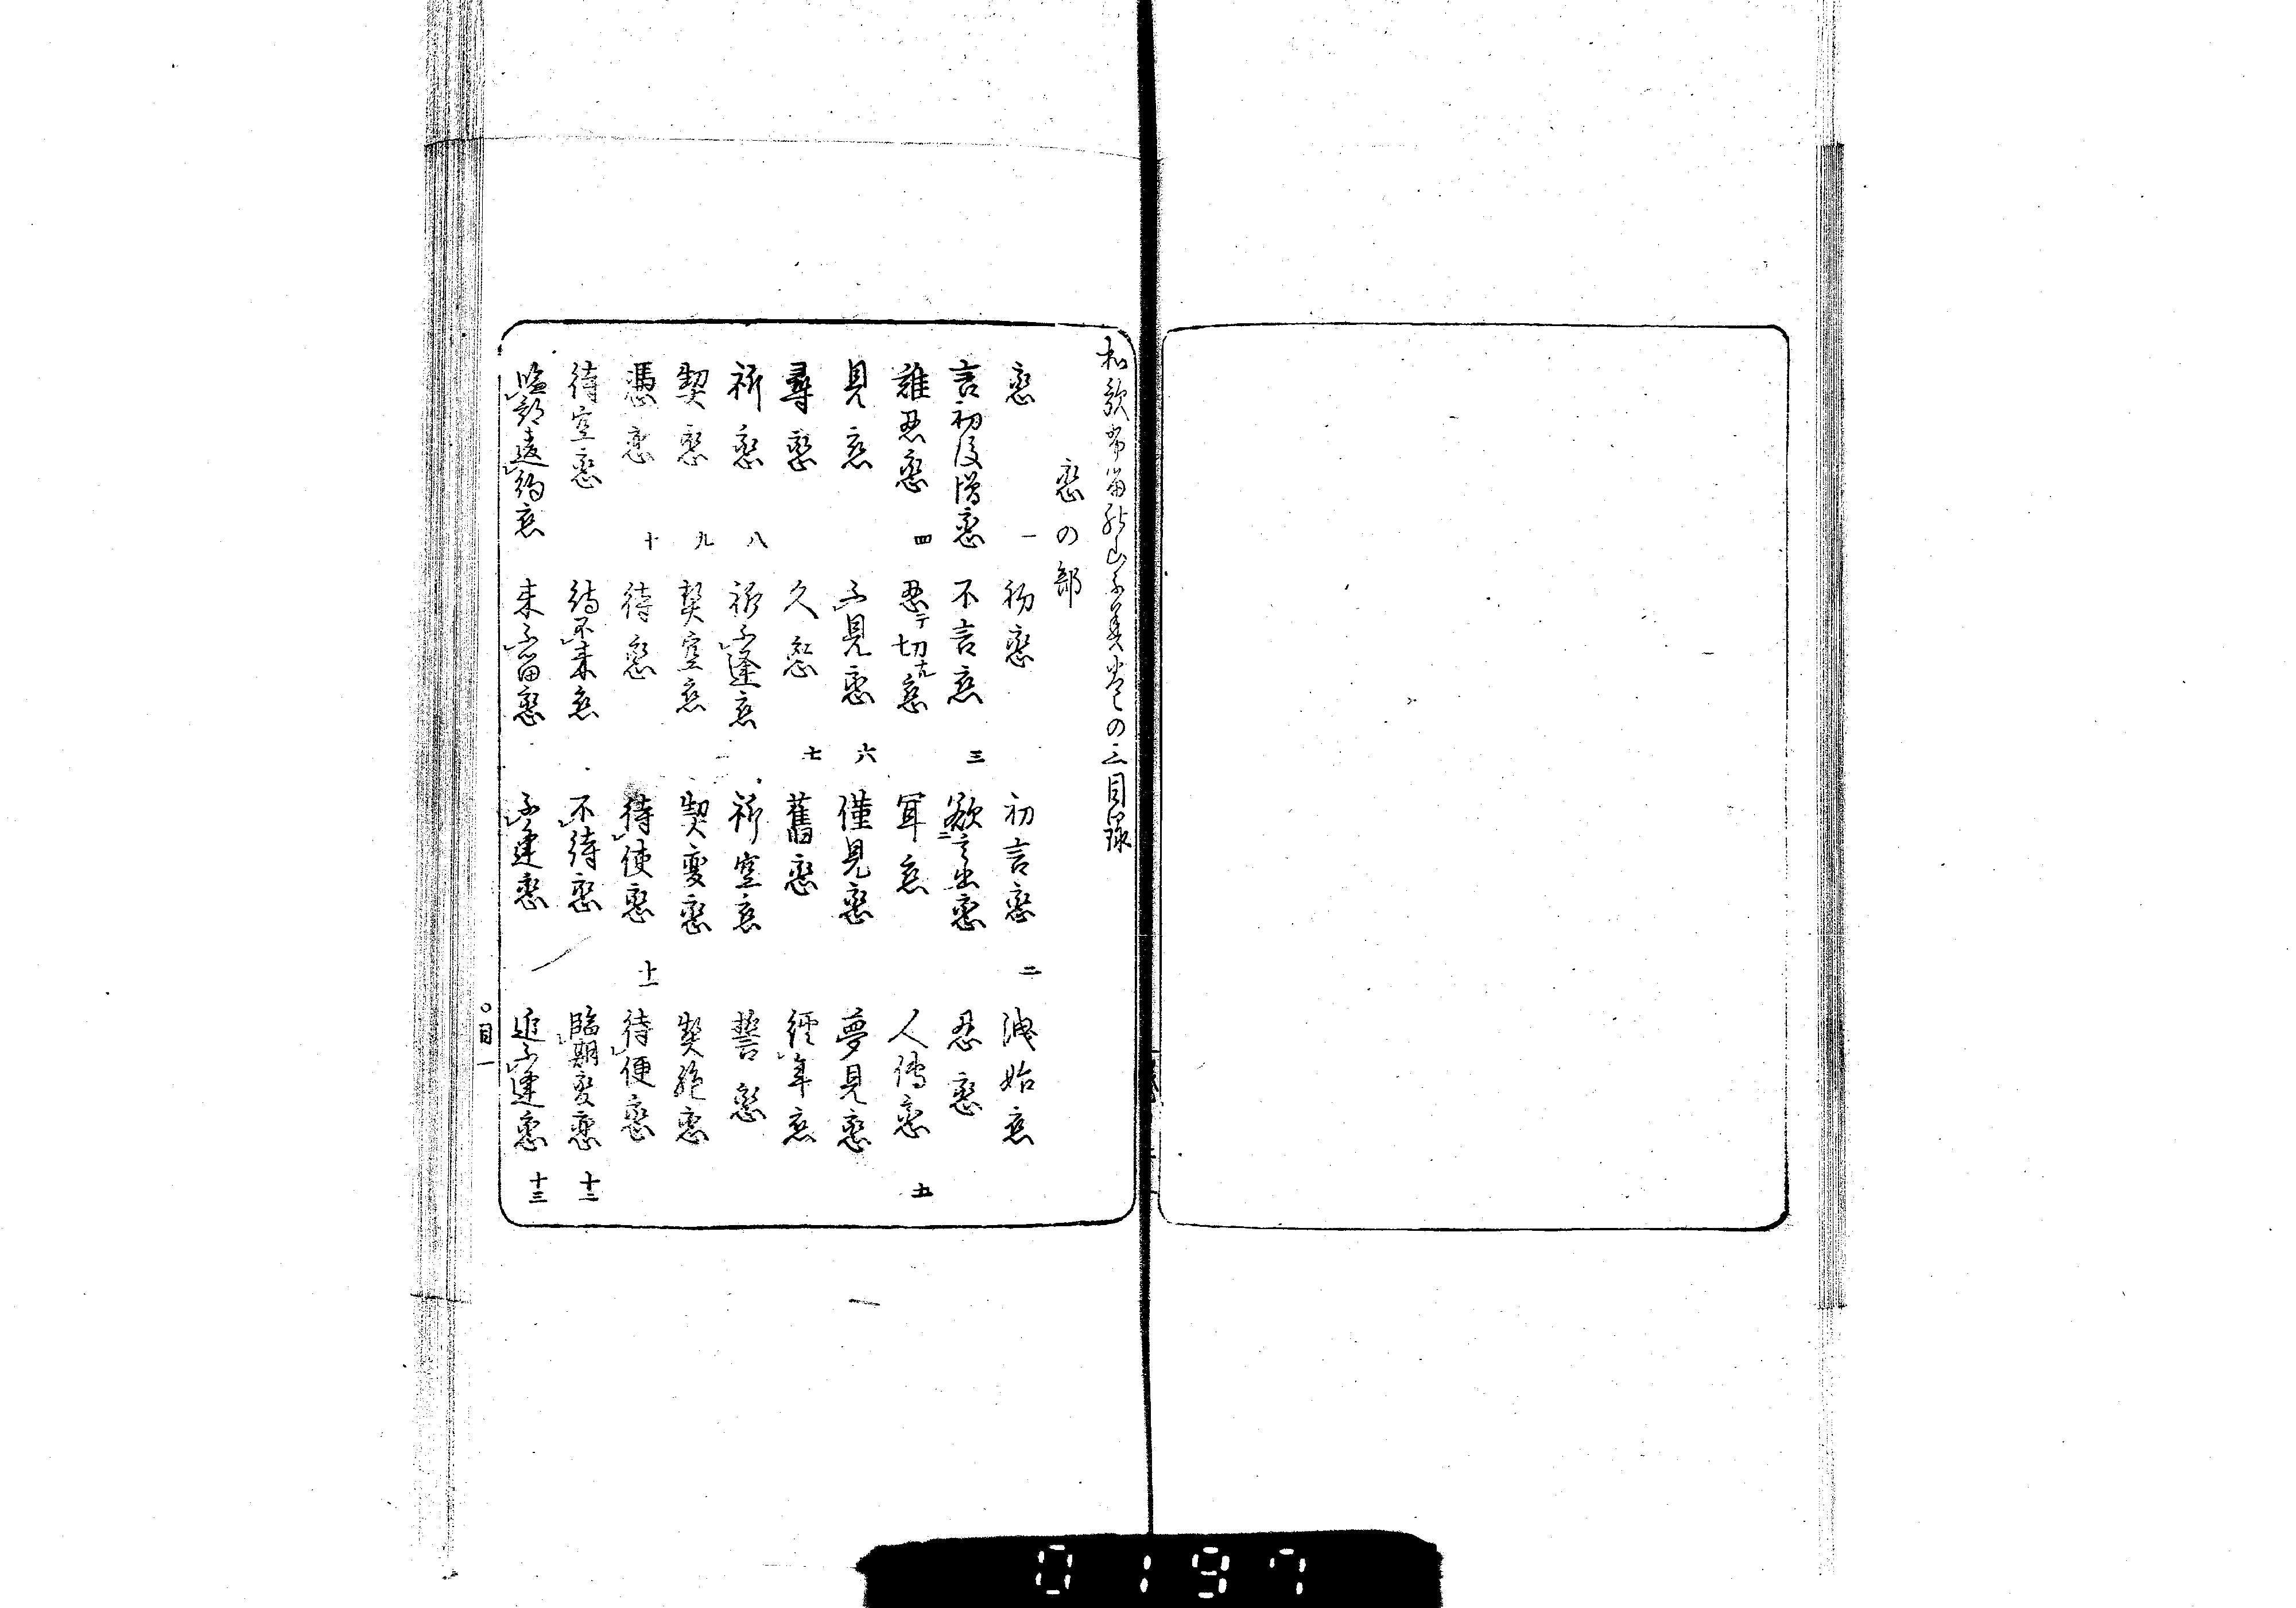 和歌
の三目録
恋の部
恋 一 初恋 初言恋 二 洩始恋
言初後増恋 不言恋 三 欲言出恋 忍恋
難忍恋 四 忍テ切ナル恋 耳恋 人傳恋 五
見恋 不見恋 六 僅見恋 夢見恋
尋恋 久恋 七 舊恋 經年恋
祈恋 八 祈不逢恋 祈空恋 誓恋
契恋 九 契空恋 契変恋 契絶恋
憑恋 十 待恋 待使恋 十一 待便恋
待空恋 待不来恋 不待恋 臨期変恋 十二
遠約恋 来不留恋 不逢恋 追不逢恋 十三
○目一
0197